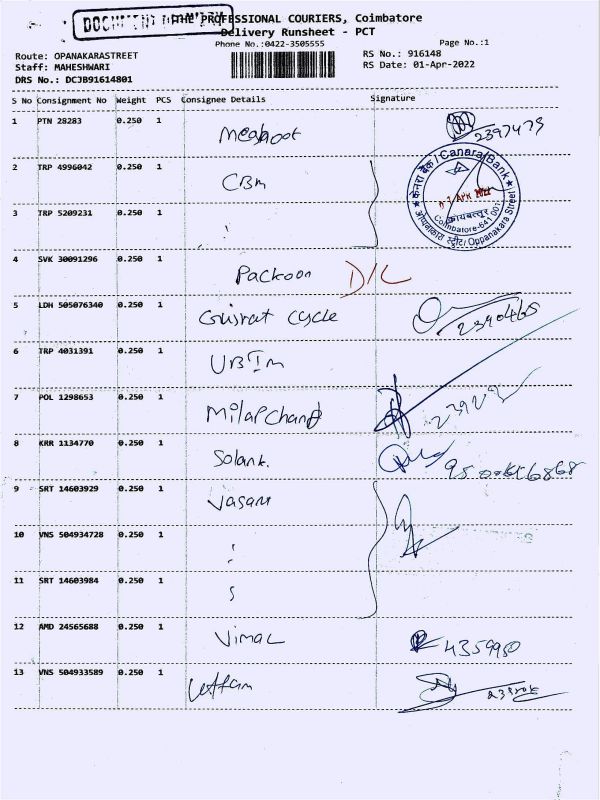 THE PROFESSIONAL COURIERS, Coimbatore
Delivery Runsheet - PCT
Phone No.:0422-3505555
Page No.:1
Route: OPANAKARASTREET
Staff: MAHESHWARI
DRS No.: DCJB91614801
RS No.: 916148
RS Date: 01-Apr-2022
S No Consignment No Weight PCS Consignee Details Signature
1 PTN 28283 0.250 1 2397479
2 TRP 4996042 0.250 1 CBM
3 TRP 5209231 0.250 1 "
केनरा बैंक / Canara Bank
कोयम्बत्तूर
Coimbatore-641 001
स्ट्रीट / Oppanakara Street
4 SVK 30091296 0.250 1 Packoon D/L
5 LDH 505076340 0.250 1 Gujrat cycle 2390465
6 TRP 4031391 0.250 1 UBIM
7 POL 1298653 0.250 1 Milapchand
8 KRR 1134770 0.250 1 Solank.
9 SRT 14603929 0.250 1 Vasan
10 VNS 504934728 0.250 1 "
11 SRT 14603984 0.250 1
12 AMD 24565688 0.250 1 Vimal 4359950
13 VNS 504933589 0.250 1 Uttam